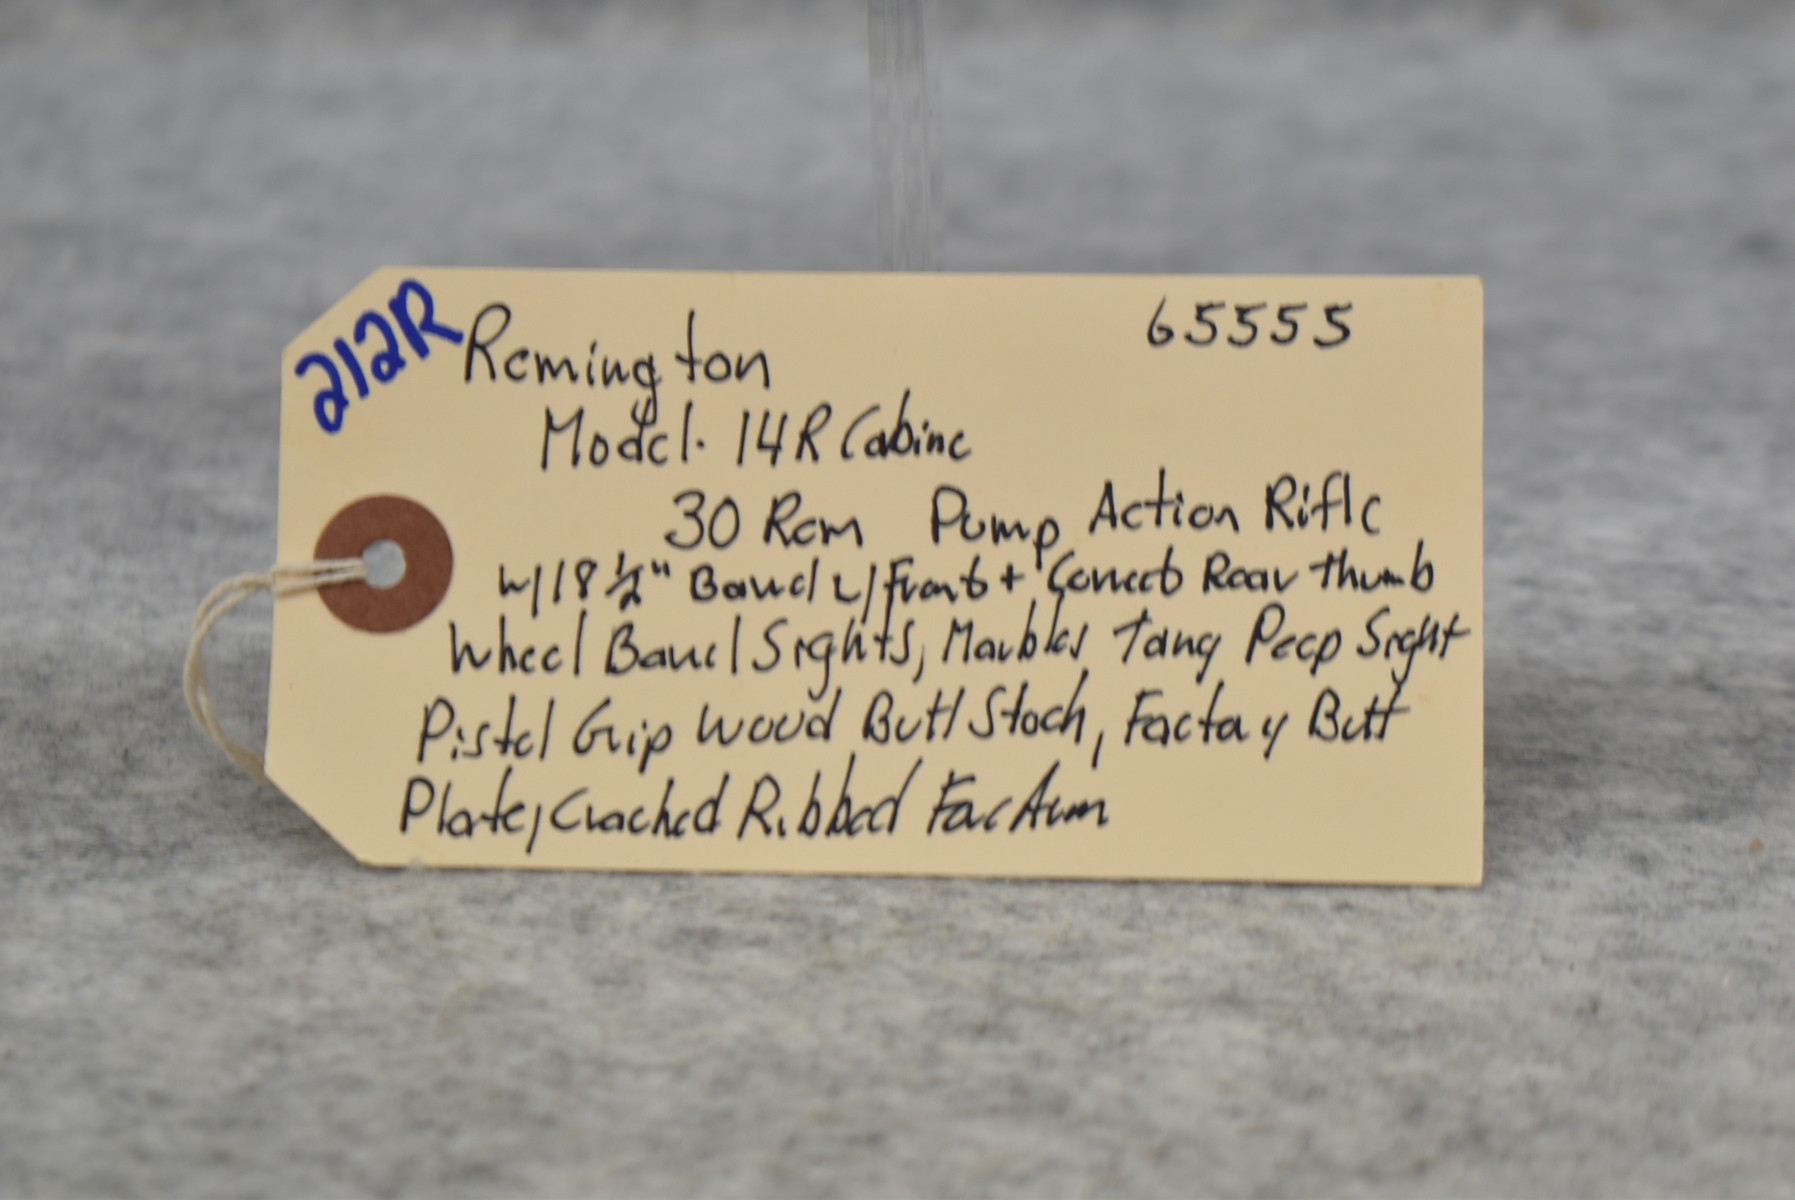 212R
Remington 65555
Model. 14R Cabine
30 Rem Pump Action Rifle
w/18 ½" Barrel w/Front + Correct Rear Thumb
Wheel Barrel Sights, Marbles Tang Peep Sight
Pistol Grip Wood Butt Stock, Factory Butt
Plate, Cracked Ribbed ForArm